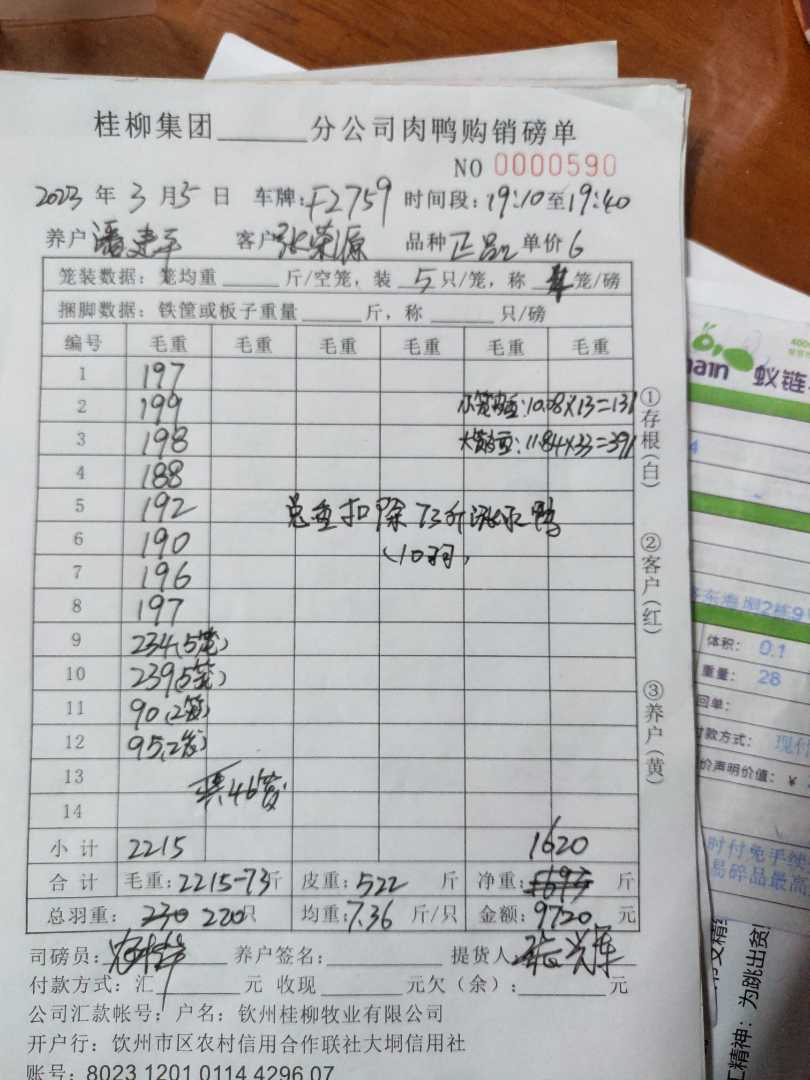 桂柳集团______分公司肉鸭购销磅单
NO 0000590
2023 年 3 月 5 日 车牌: F2759 时间段: 19:10 至 19:40
养户 潘建平 客户 张荣源 品种 正品 单价 6
笼装数据: 笼均重______斤/空笼, 装 5 只/笼, 称 4 笼/磅
捆脚数据: 铁筐或板子重量______斤, 称______只/磅
编号 毛重 毛重 毛重 毛重 毛重 毛重
1 197
2 199 小笼均重: 10.08×13=131
3 198 大笼均重: 11.84×33=391
4 188
5 192 总重扣除73斤 鸭
6 190 (10羽)
7 196
8 197
9 234(5笼)
10 239(5笼)
11 90(2笼)
12 95(2笼)
13 共46笼
14
小计 2215 1620
合计 毛重: 2215-73斤 皮重: 522 斤 净重: 斤
总羽重: 230 220只 均重: 7.36 斤/只 金额: 9720 元
司磅员: 养户签名:______ 提货人
付款方式: 汇______元 收现______元欠(余):______元
公司汇款帐号: 户名: 钦州桂柳牧业有限公司
开户行: 饮州市区农村信用合作联社大垌信用社
账号: 8023 1201 0114 4296 07
①存根(白)
②客户(红)
③养户(黄)
400
hain 蚁链
4
东海 垌2栋9
体积: 0.1
重量: 28
回单:
付款方式: 现付
价声明价值: ¥
时付免手续
易碎品最高
工精神: 为跳出贫